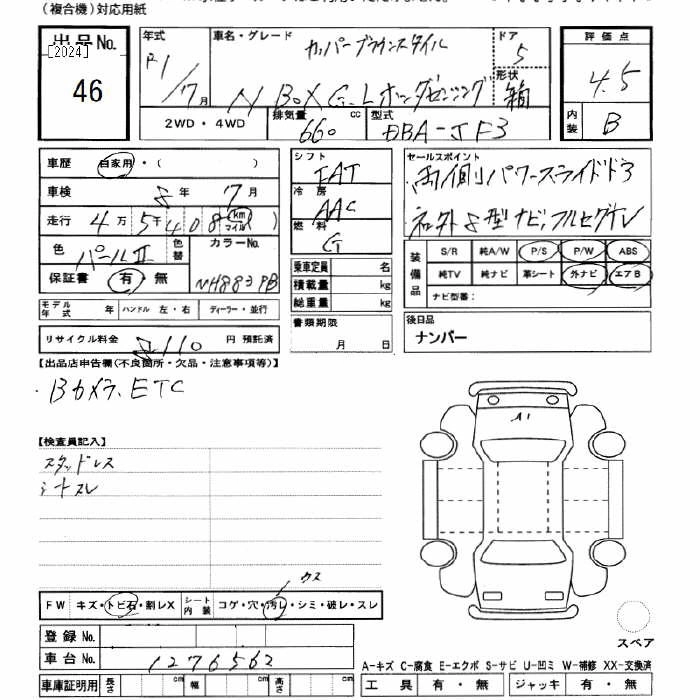 (複合機)対応用紙
出品No.
[2024]
46
年式
R1/7月
車名・グレード
カッパーブラウンスタイル
N BOX G・Lホンダセンシング
ドア
5
形状
箱
評価点
4.5
内装
B
2WD・4WD
排気量
660 cc
型式
DBA-JF3
車歴 自家用・( )
車検 8年 7月
走行 4万5千408 km マイル( )
色 パールII
色替
カラーNo.
NH883PB
保証書 有・無
シフト
FAT
冷房
AAC
燃料
G
乗車定員 名
積載量 kg
総重量 kg
セールスポイント
両側パワースライドドア
社外8型ナビ,フルセグTV
装備品
S/R 純A/W P/S P/W ABS
純TV 純ナビ 革シート 外ナビ エアB
ナビ型番:
モデル年式 年 ハンドル 左・右 ディーラー・並行
リサイクル料金 8110 円 預託済
書類期限
月 日
後日品
ナンバー
【出品店申告欄(不良箇所・欠品・注意事項等)】
・Bカメラ、ETC
【検査員記入】
スタッドレス
シートスレ
A1
ウス
FW キズ・トビ石・割レX シート内装 コゲ・穴・汚レ・シミ・破レ・スレ
スペア
登録No.
車台No. 1276562
A-キズ C-腐食 E-エクボ S-サビ U-凹ミ W-補修 XX-交換済
車庫証明用 長さ cm 幅 cm 高さ cm
工具 有・無 ジャッキ 有・無